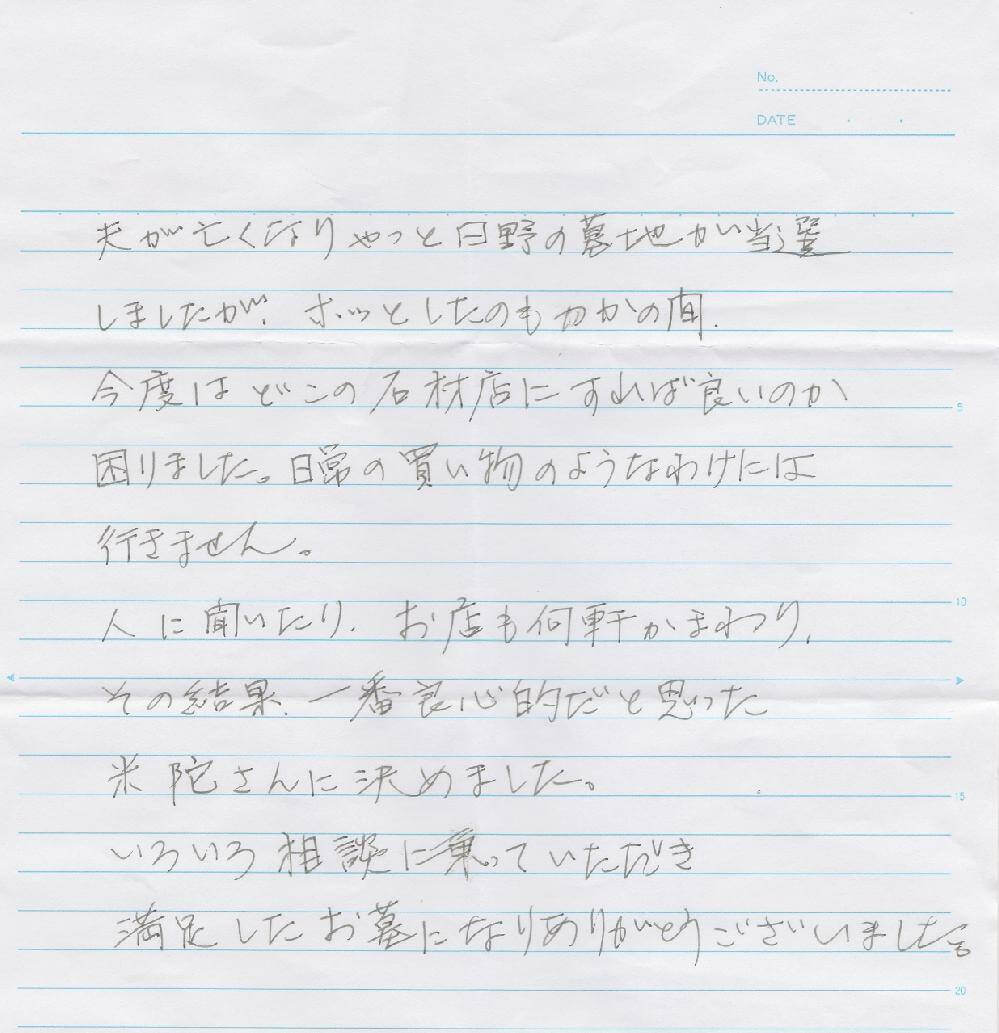 No.
DATE
夫が亡くなりやっと日野の墓地が当選
しましたが、ホッとしたのもつかの間、
今度はどこの石材店にすれば良いのか
困りました。日常の買い物のようなわけには
行きません。
人に聞いたり、お店も何軒かまわり、
その結果、一番良心的だと思った
米陀さんに決めました。
いろいろ相談に乗っていただき
満足したお墓になりありがとうございました。
5
10
15
20